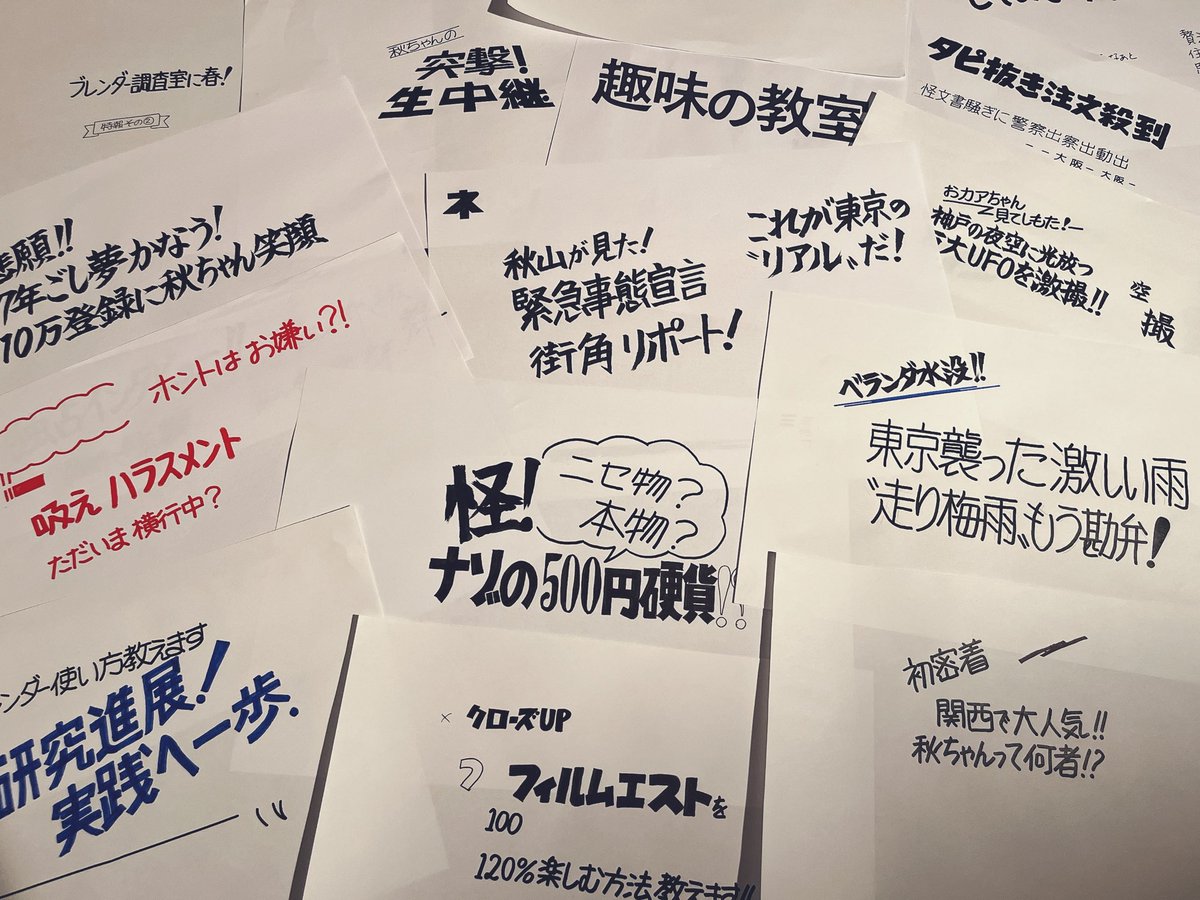 ブレンダー調査室に春!
特報その②
秋ちゃんの
突撃!
生中継
趣味の教室
タピ抜き注文殺到
怪文書騒ぎに警察出察出動出
ーー大阪ー大阪ー
悲願!!
7年ごし夢かなう!
10万登録に秋ちゃん笑顔
ネ
秋山が見た!
緊急事態宣言
街角リポート!
これが東京の
〝リアル〟だ!
おカアちゃん
見てしもた!ー
神戸の夜空に光放つ
大UFOを激撮!!
空
撮
ホントはお嫌い?!
吸えハラスメント
ただいま横行中?
怪!
ニセ物?
本物?
ナゾの500円硬貨!!
ベランダ水没!!
東京襲った激しい雨
〝走り梅雨〟もう勘弁!
ンダー使い方教えます
研究進展!
実践へ一歩.
×クローズUP
フ
フィルムエストを
100
120%楽しむ方法教えます!!
初密着
関西で大人気!!
秋ちゃんって何者!?